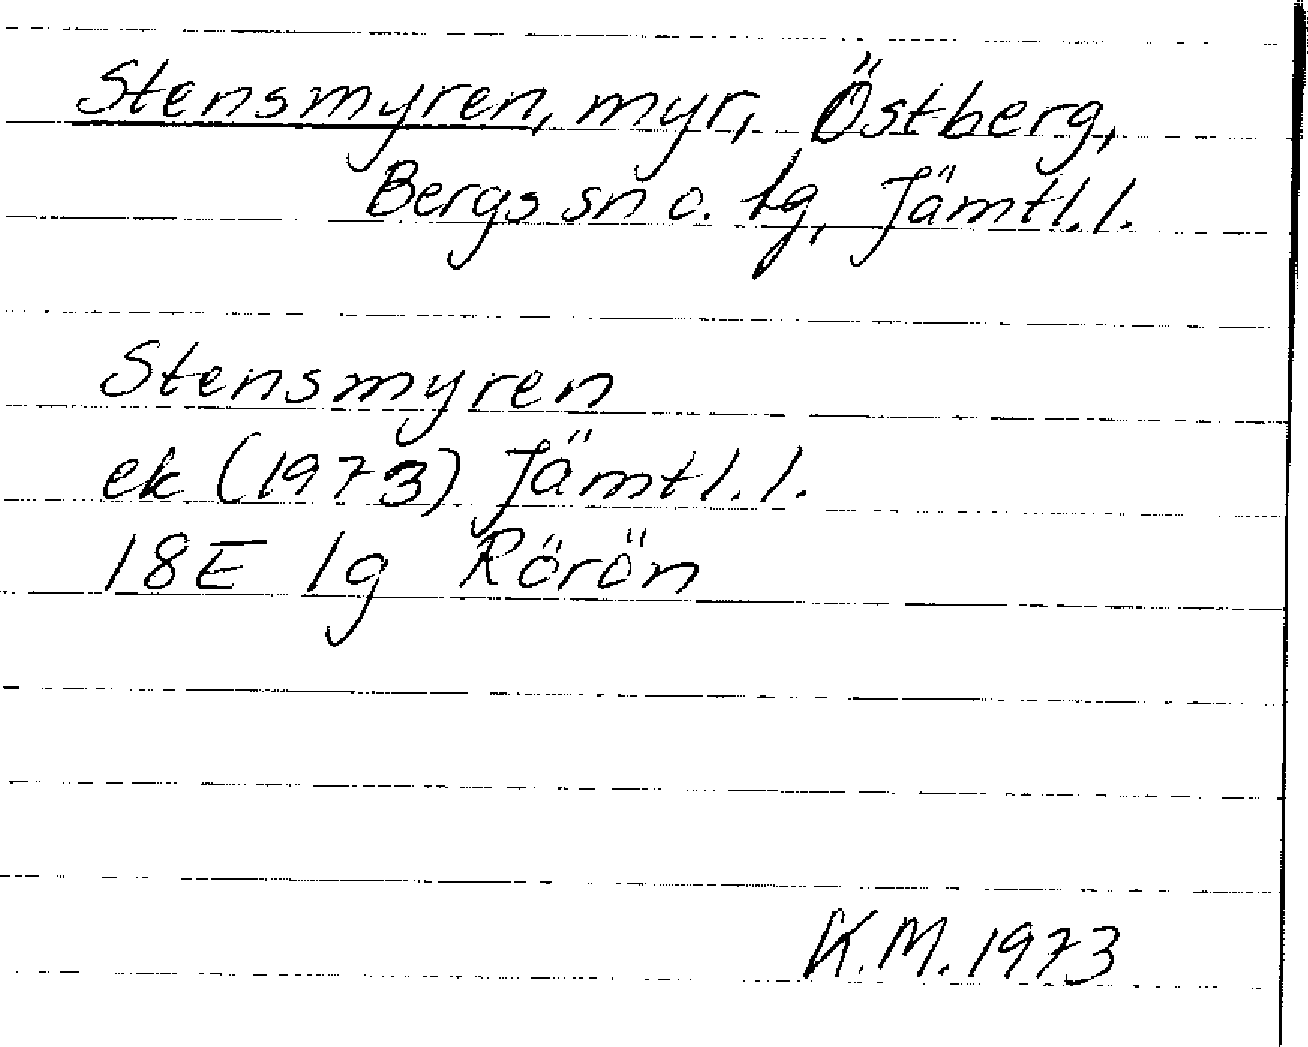 Stensmyren, myr, Östberg,
Bergs sn o. tg, Jämtl. l.
Stensmyren
ek (1973) Jämtl. l.
18E 1g Rörön
K.M. 1973